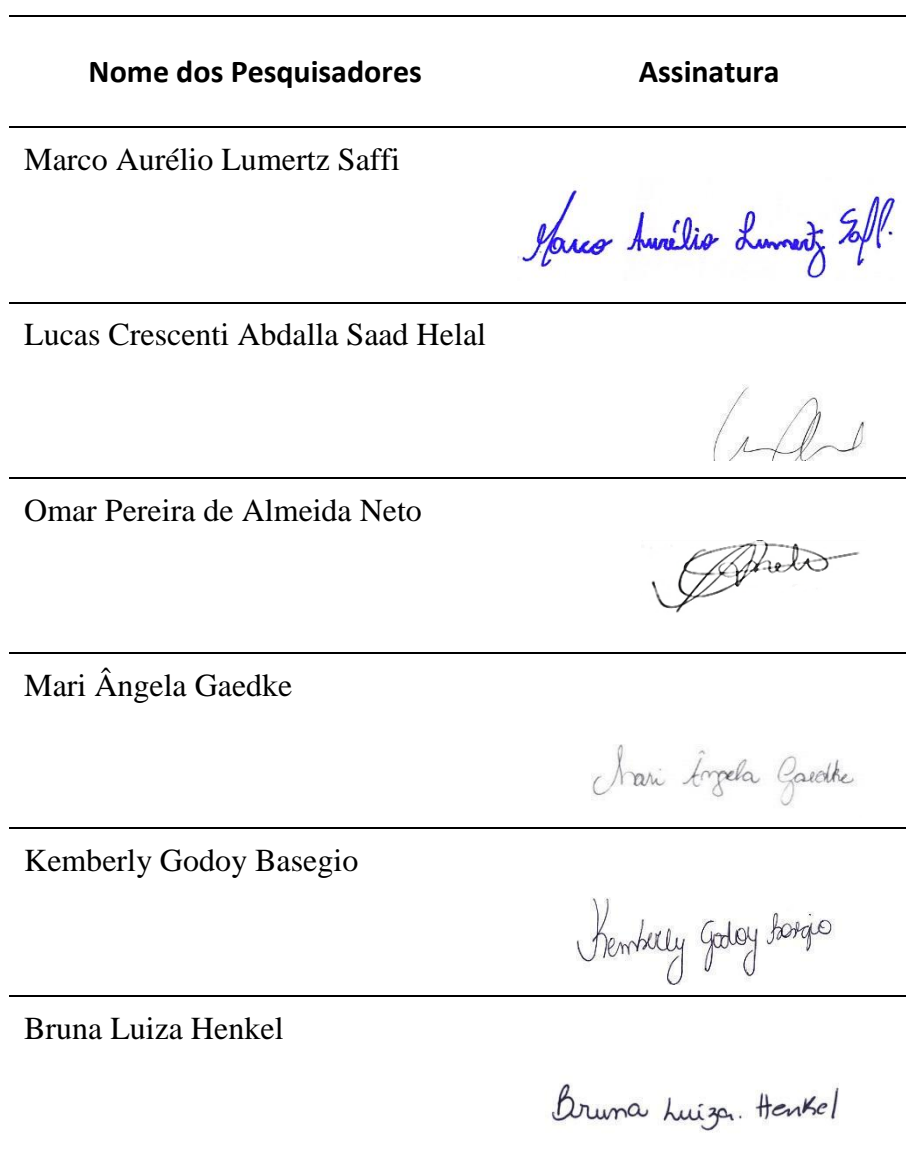 Nome dos Pesquisadores Assinatura
Marco Aurélio Lumertz Saffi
Marco Aurélio Lumertz Saff.
Lucas Crescenti Abdalla Saad Helal
Omar Pereira de Almeida Neto
Mari Ângela Gaedke
Mari Ângela Gaedke
Kemberly Godoy Basegio
Kemberly Godoy Basegio
Bruna Luiza Henkel
Bruna Luiza. Henkel